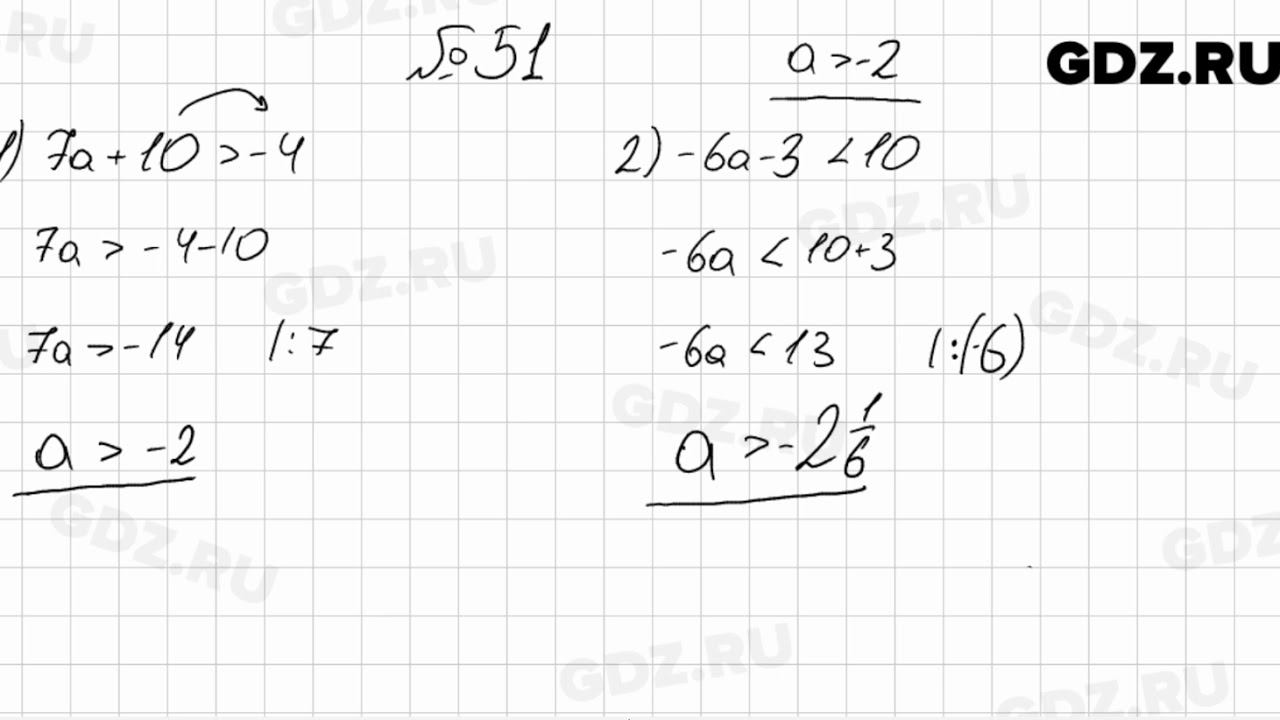 №51
a > -2
GDZ.RU
1) 7a + 10 > -4
7a > -4-10
7a > -14 |:7
a > -2
2) -6a-3 < 10
-6a < 10+3
-6a < 13 |:(-6)
a > -2 1/6
GDZ.RU
GDZ.RU
GDZ.RU
GDZ.RU
GDZ.RU
GDZ.RU
GDZ.RU
GDZ.RU
GDZ.RU
GDZ.RU